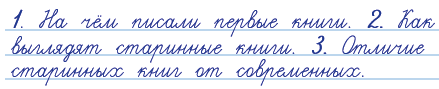 1. На чём писали первые книги. 2. Как
выглядят старинные книги. 3. Отличие
старинных книг от современных.